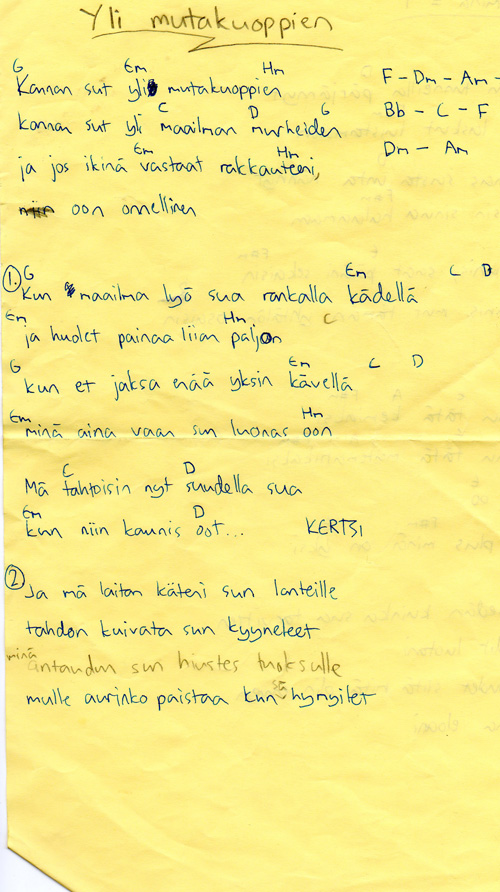 Yli mutakuoppien
G Em Hm F - Dm - Am -
Kannan sut yli mutakuoppien
C D G Bb - C - F
kannan sut yli maailman murheiden
Em Hm Dm - Am
ja jos ikinä vastaat rakkauteeni,
niin oon onnellinen
1. G Em C D
Kun maailma lyö sua rankalla kädellä
Em Hm C
ja huolet painaa liian paljon
G Em C D
kun et jaksa enää yksin kävellä
Em Hm
minä aina vaan sun luonas oon
C D
Mä tahtoisin nyt suudella sua
Em D
kun niin kaunis oot... KERTSI
2 Ja mä laitan käteni sun lanteille
tahdon kuivata sun kyyneleet
minä antaudun sun hiustes tuoksulle
mulle aurinko paistaa kun hymyilet